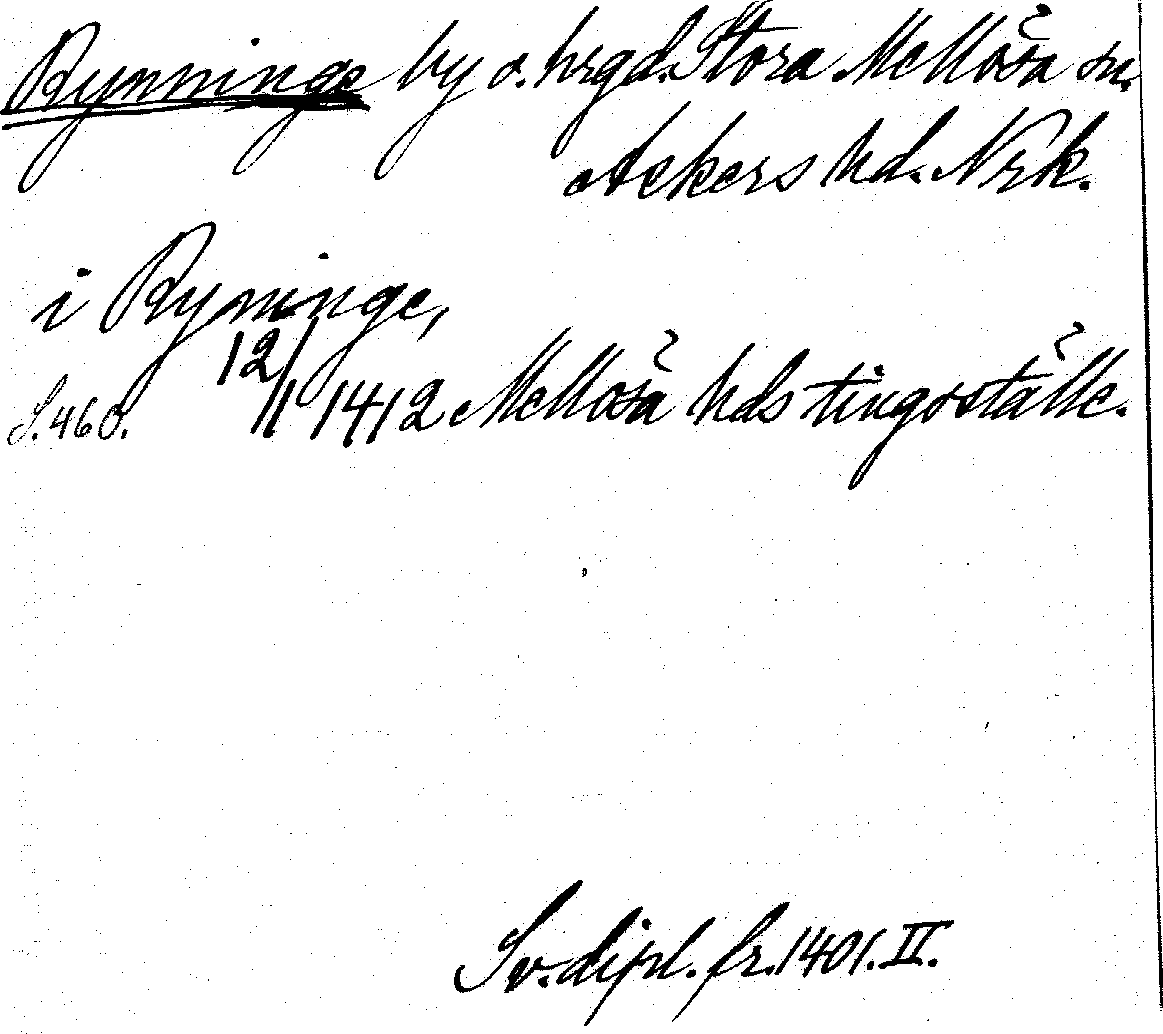 Rynninge by o. hrgd. Stora Mellösa sn.
Askers hd. Nrk.
i Ryninge,
S. 460. 12/11 1412 Mellösa hds tingsställe.
Sv. dipl. fr. 1401. II.